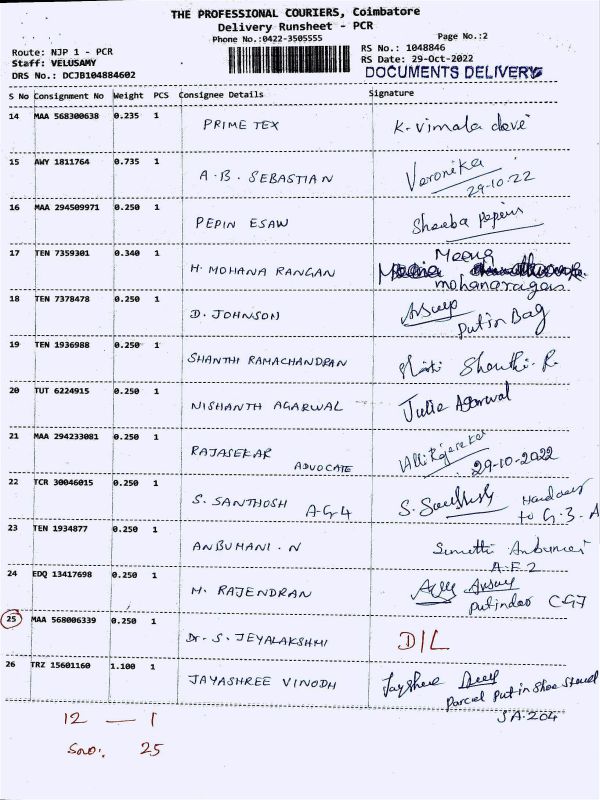 THE PROFESSIONAL COURIERS, Coimbatore
Delivery Runsheet - PCR
Phone No.:0422-3505555
Page No.:2
Route: NJP 1 - PCR
RS No.: 1048846
Staff: VELUSAMY
RS Date: 29-Oct-2022
DRS No.: DCJB104884602
DOCUMENTS DELIVERY
S No Consignment No Weight PCS Consignee Details Signature
14 MAA 568300638 0.235 1 PRIME TEX K. Vimala devi
15 AWY 1811764 0.735 1 A.B. SEBASTIAN Veronika
29-10-22
16 MAA 294509971 0.250 1 PEPIN ESAW Sheeba Pepin
17 TEN 7359301 0.340 1 H. MOHANA RANGAN Meena
mohanaragan
18 TEN 7378478 0.250 1 D. JOHNSON
put in Bag
19 TEN 1936988 0.250 1 SHANTHI RAMACHANDRAN Shanthi. R.
20 TUT 6224915 0.250 1 NISHANTH AGARWAL Julie Agarwal
21 MAA 294233081 0.250 1 RAJASEKAR ADVOCATE
29-10-2022
22 TCR 30046015 0.250 1 S. SANTHOSH A-G-4 S.
to G.3.A
23 TEN 1934877 0.250 1 ANBUMANI. N
A.F2
24 EDQ 13417698 0.250 1 M. RAJENDRAN
CG7
25 MAA 568006339 0.250 1 Dr. S. JEYALAKSHMI D/L
26 TRZ 15601160 1.100 1 JAYASHREE VINODH Jayshree
Parcel put in Shoe Stand
SA-204
12 — 1
S.no: 25